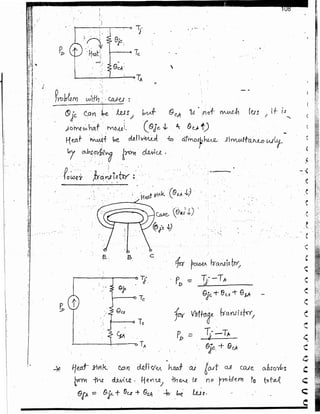 108
Tj
θjc
PD
Heat
Tc
θCA
TA
Problem with cases :
θjc can be less, but θCA is not much less, it is
somewhat more. (θjc ↓ & θCA ↑)
Heat must be delivered to atmosphere simultaneously
by absorbing from device.
Power transistor :
Heat sink (θSA ↓)
Case (θCS ↓)
(θjc ↓)
E B C
Tj
θjc
Tc
PD
θCS
Ts
θSA
TA
for power transistor,
PD = Tj - TA
θjc + θCS + θSA
for Voltage transistor,
PD = Tj - TA
θjc + θCA
Heat sink can deliver heat as fast as case absorbs
from the device. Hence, there is no problem to total
θjA = θjc + θCS + θSA to be less.